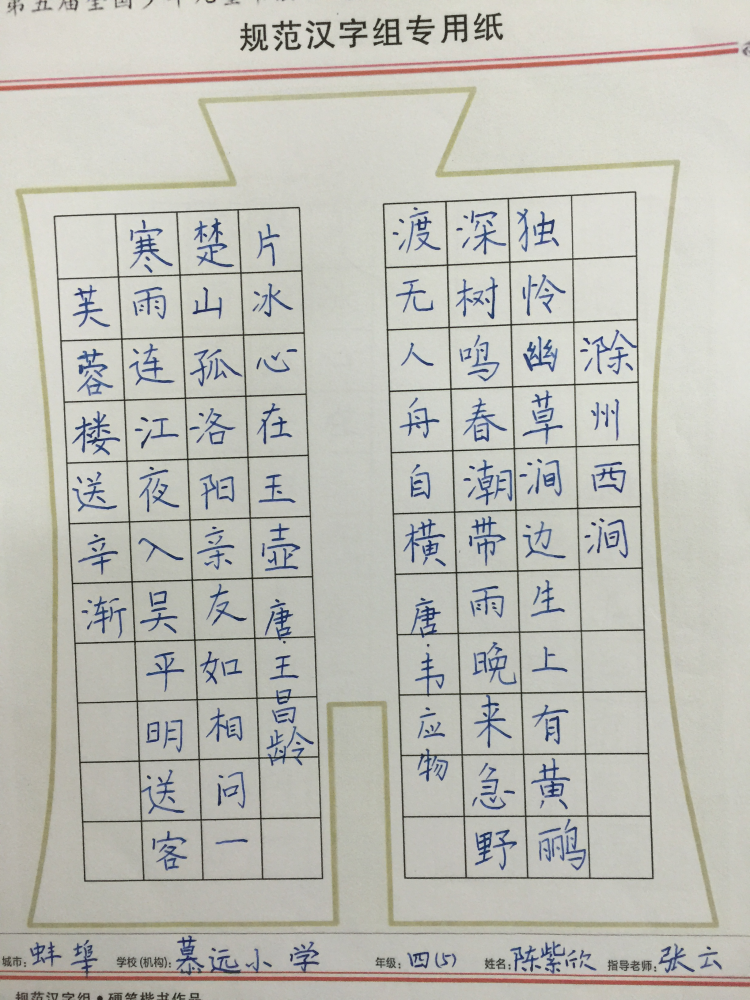 第五届全国少年儿童
规范汉字组专用纸
芙蓉楼送辛渐
寒雨连江夜入吴平明送客
楚山孤洛阳亲友如相问一
片冰心在玉壶唐·王昌龄
滁州西涧
独怜幽草涧边生上有黄鹂
深树鸣春潮带雨晚来急野
渡无人舟自横唐·韦应物
城市：蚌埠 学校（机构）：慕远小学 年级：四（5） 姓名：陈紫欣 指导老师：张云
规范汉字组·硬笔楷书作品